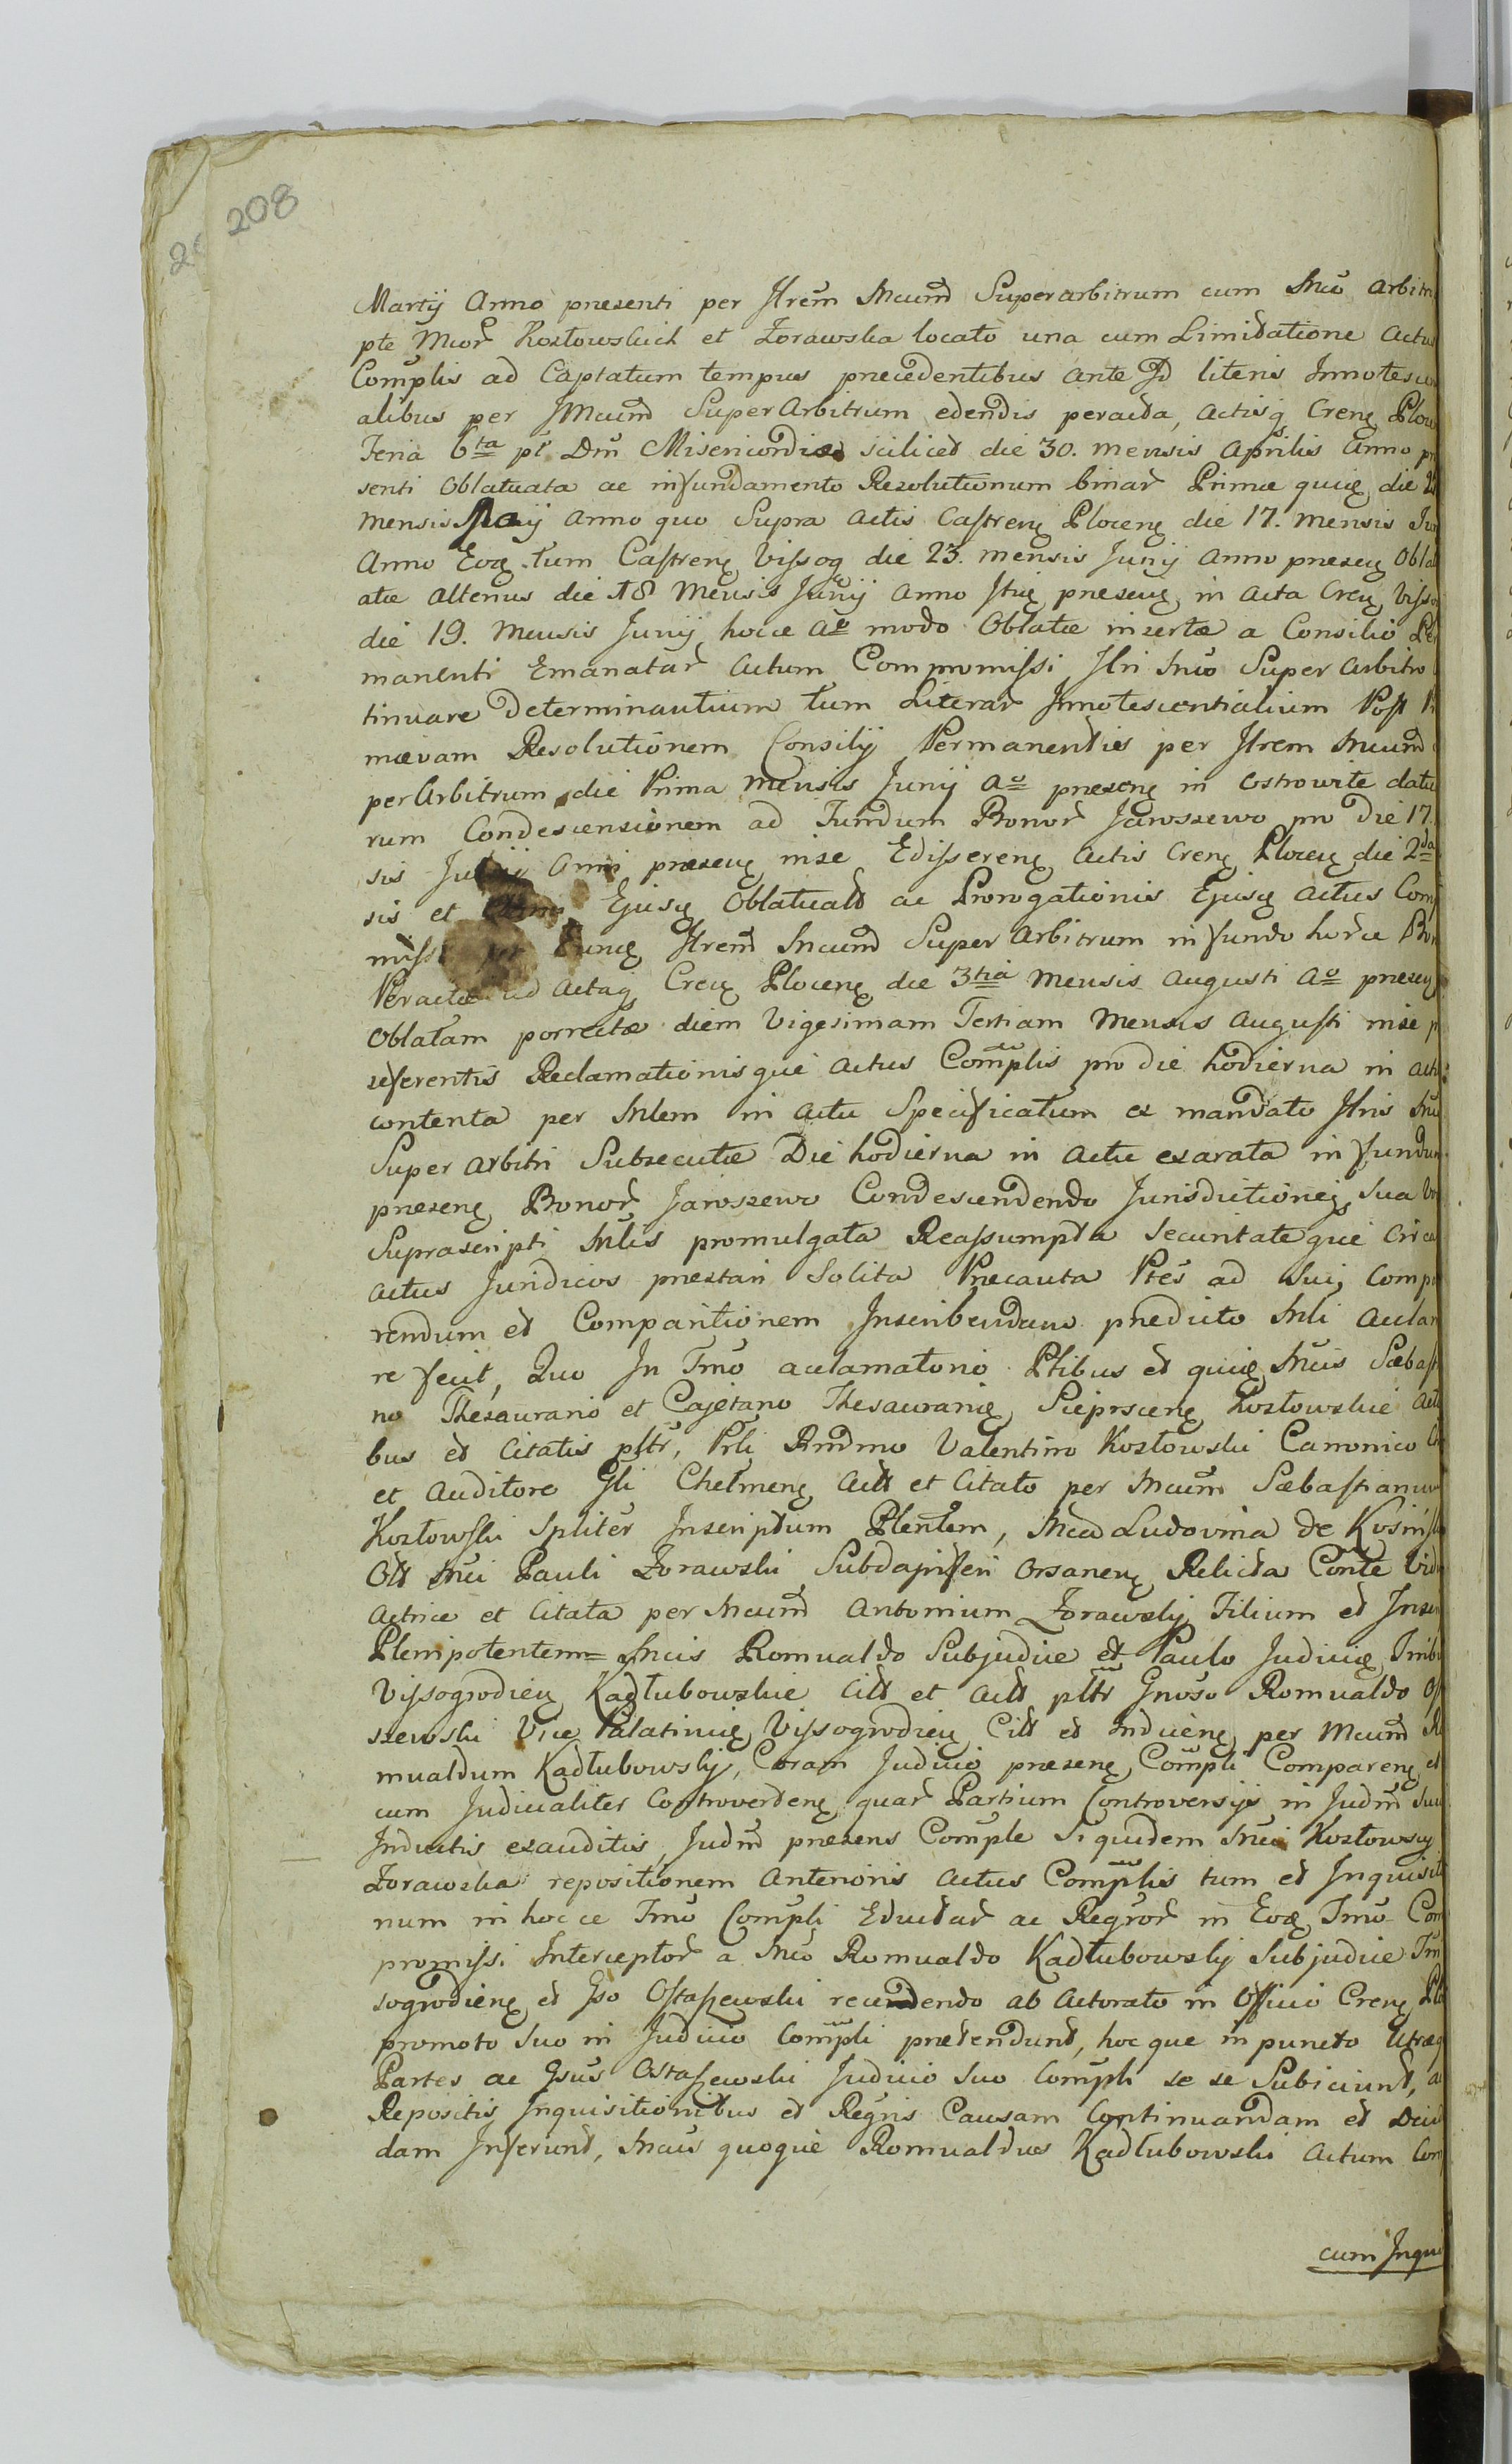 208
Martij Anno præsenti per Jlrem Mcum̃d Superarbitrum cum Mco arbitr
pte Mcor̃ Kozłowskich et Zorawska locato una cum Limitatione Actus
Com̃plis ad Captatum tempus præcedentibus ante Jd literis Innotescen
alibus per JMcum̃d SuperArbitrum edendis peracta, Actisq̨ Creñ Ploce
Feria 6ta pt̃ Dñi Misericordiæ scilicet die 30. mensis Aprilis Anno præ
senti Oblatuata ac in fundamento Resolutionum binar̃ Primæ quię die 2
mensis Maij Anno quo Supra Actis Castreñ Ploceñ die 17. mensis Ju
Anno Eoą tum Castreñ Vissog die 23. mensis Junij Anno præseñ Oblat
atæ alterius die 18 Mensis Junij Anno Itię præseñ in Acta Creñ Visso
die 19. Mensis Junij hocce Ao modo Oblatæ insertæ a Consilio Per
manenti Emanatar̃ Actum Compromissi Jlri Mco Super Arbitro
tinuare Determinantium tum Literar̃ Innotescentialium Post Pri
mævam Resolutionem Consilij Permanentis per Jlrem Mcum̃d
perArbitrum die Prima Mensis Junij Ao præseñ in Ostrowite datu
rum Condescensionem ad Fundum Bonor̃ Jaroszewo pro Die 17.
sis Anni præseñ in se Edissereñ Actis Creñ Ploceñ die 2da
sis et Ejusą Oblatuatt ac Prorogationis Ejusą Actus Com
miss Euncę Jlrem̃d Mcum̃d Super Arbitrum in fundo horce Bon
Peractæ ad Actaq̨ Creñ Ploceñ die 3tia Mensis Augusti Ao præseñ
Oblatam porrectæ diem Vigesimam Tertiam Mensis Augusti in se p
seferentis Reclamationisque Actus Com̃plis pro die hodierna in actu
contenta per Mlem in Actu Specificatum ex mandato Jlris Mci
Super Arbitri Subsecutæ Die hodierna in Actu exarata in fundum
præseñ Bonor̃ Jaroszewo Condescendendo Jurisdictioneą Sua
Suprascripti Mlis promulgata Reassumpta Securitateque Circa
actus Juridicos præstari Solita Præcauta Ptes ad Sui Compa
rendum et Comparitionem Inscribendam prædicto Mli Aclam
re fecit, Quo In Tmo aclamatorio Ptibus et quię Mcis Sæbast
no Thesaurario et Cajetano Thesaurarię Sieprsceñ Kozłowskie Acto
bus et Citatis pltr, Prli Rndmo Valentino Kozłowski Canonico
et Auditore Gli Chelmeñ Actt et Citato per Mcum̃ Sæbastianum
Kozłowski Spliter Inscriptum Plentem, Mca Ludovina de Kosińsk
Olt Mci Pauli Zorawski Subdapiferi Orsaneñ Relicta Conte Vid
Actrice et Citata per Mcum̃d Antonium Zorawskj Filium et Inscr
Plenipotentem = Mcis Romualdo Subjudice et Paulo Judicię Tribu
Vissogrodieñ Kadłubowskie Citt et Actt pltr Gnoso Romualdo Os
szewski Vice Palatinię Vissogrodieñ Citt et Induceñ per Mcum̃d Ro
mualdum Kadłubowskj, Coram Judicio præseñ Com̃pli Compareñ et
cum Judicialiter Controverteñ quar̃ Partium Controversijs in Judm̃d Suu
Inductis exauditis, Judm̃d præsens Com̃ple Siquidem Mci Kozłowscy
Zorawska repositionem Anterioris Actus Com̃plis tum et Inquisiti
num in hocce Tmo Com̃pli Eductar̃ ac Regror̃ in Eoą Tmo Com
promissi Interceptor̃ a Mco Romualdo Kadłubowskj Subjudice
sogrodieñ et Gso Ostaszewski recedendo ab Actorato in Officio Creñ Plo
promoto Suo in Judicio Com̃pli prætendunt, hocque in puncto Utræq
Partes ac Gsus Ostaszewski Judicio Suo Com̃pli se se Subiciunt, a
Repositis Inquisitionibus et Regris Causam Continuandam et Decid
dam Inferunt, Mcus quoque Romualdus Kadłubowski Actum Com
cum Inqui